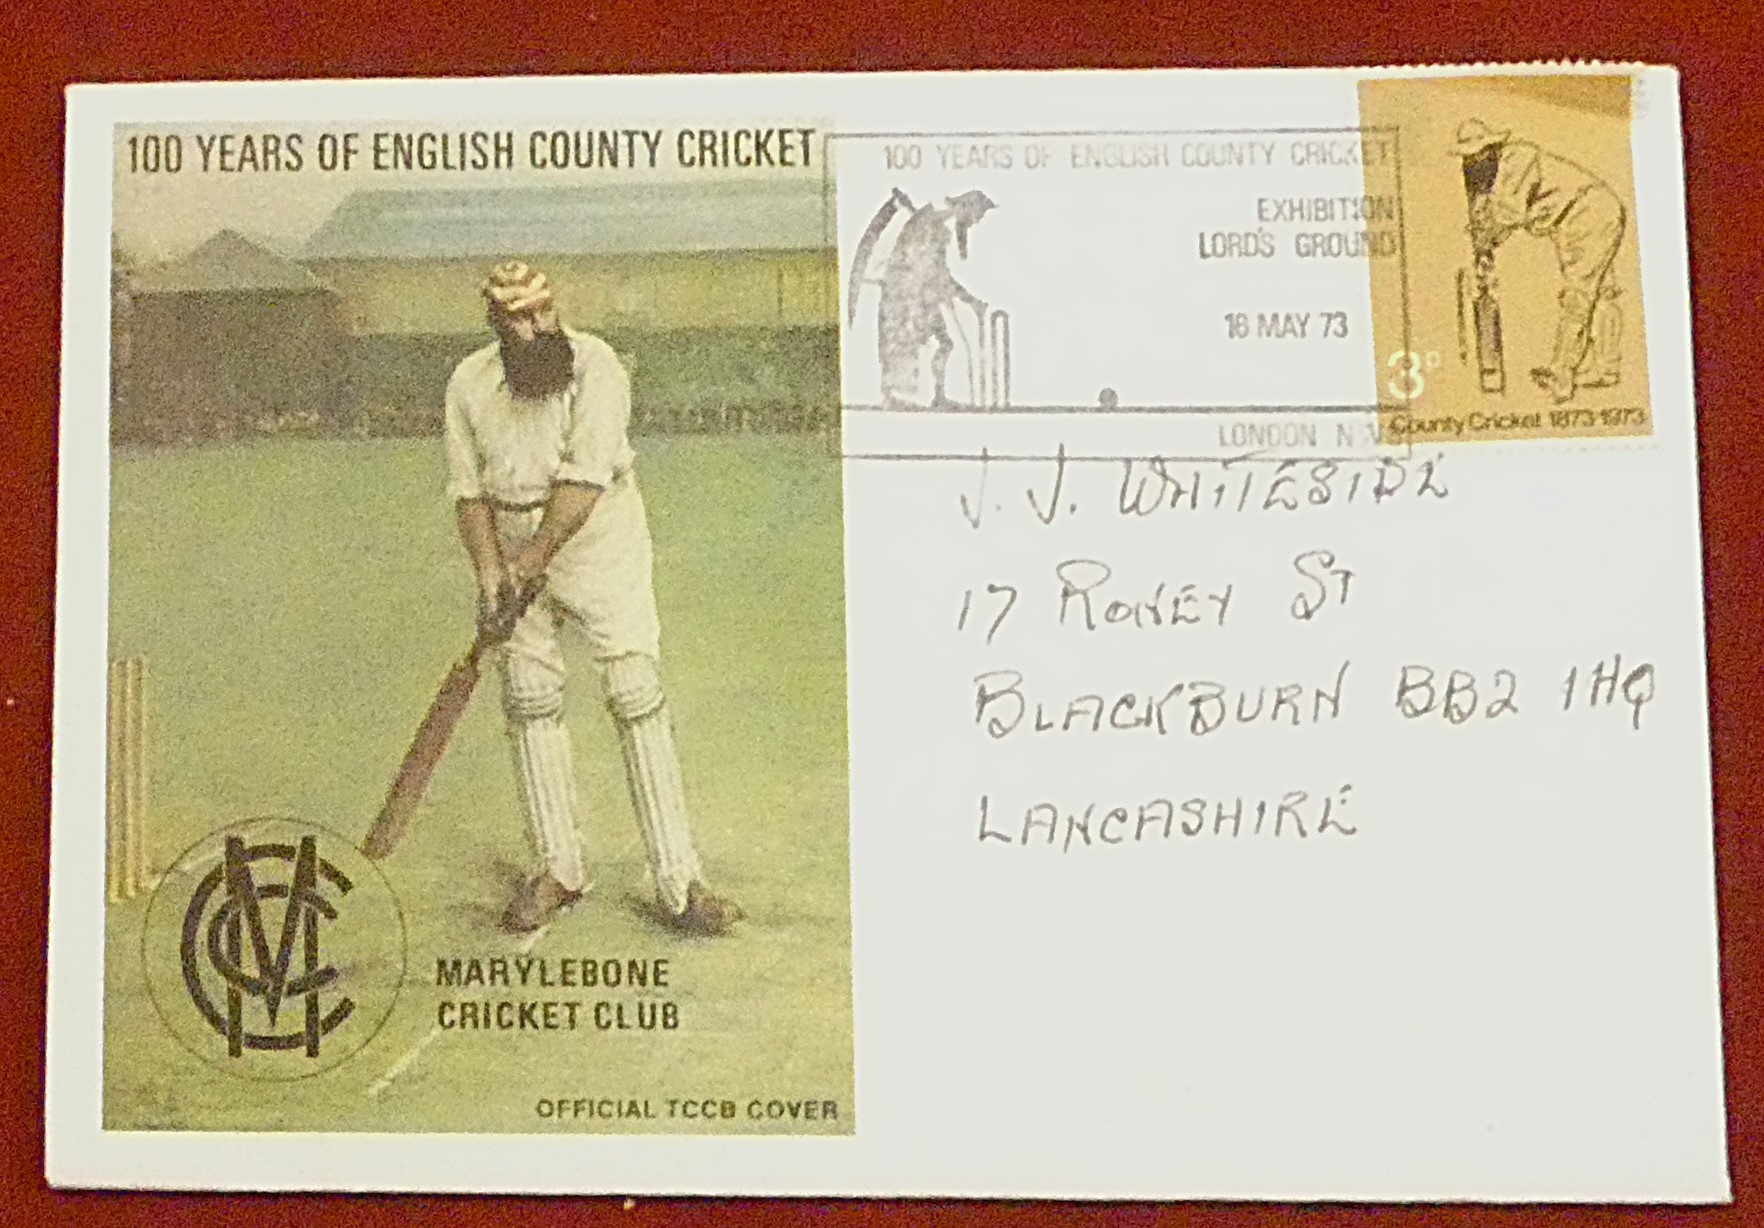 100 YEARS OF ENGLISH COUNTY CRICKET
MCC
MARYLEBONE
CRICKET CLUB
OFFICIAL TCCB COVER
100 YEARS OF ENGLISH COUNTY CRICKET
EXHIBITION
LORD'S GROUND
16 MAY 73
LONDON NW8
3P
County Cricket 1873-1973
J. J. WHITESIDE
17 RONEY ST
BLACKBURN BB2 1HQ
LANCASHIRE